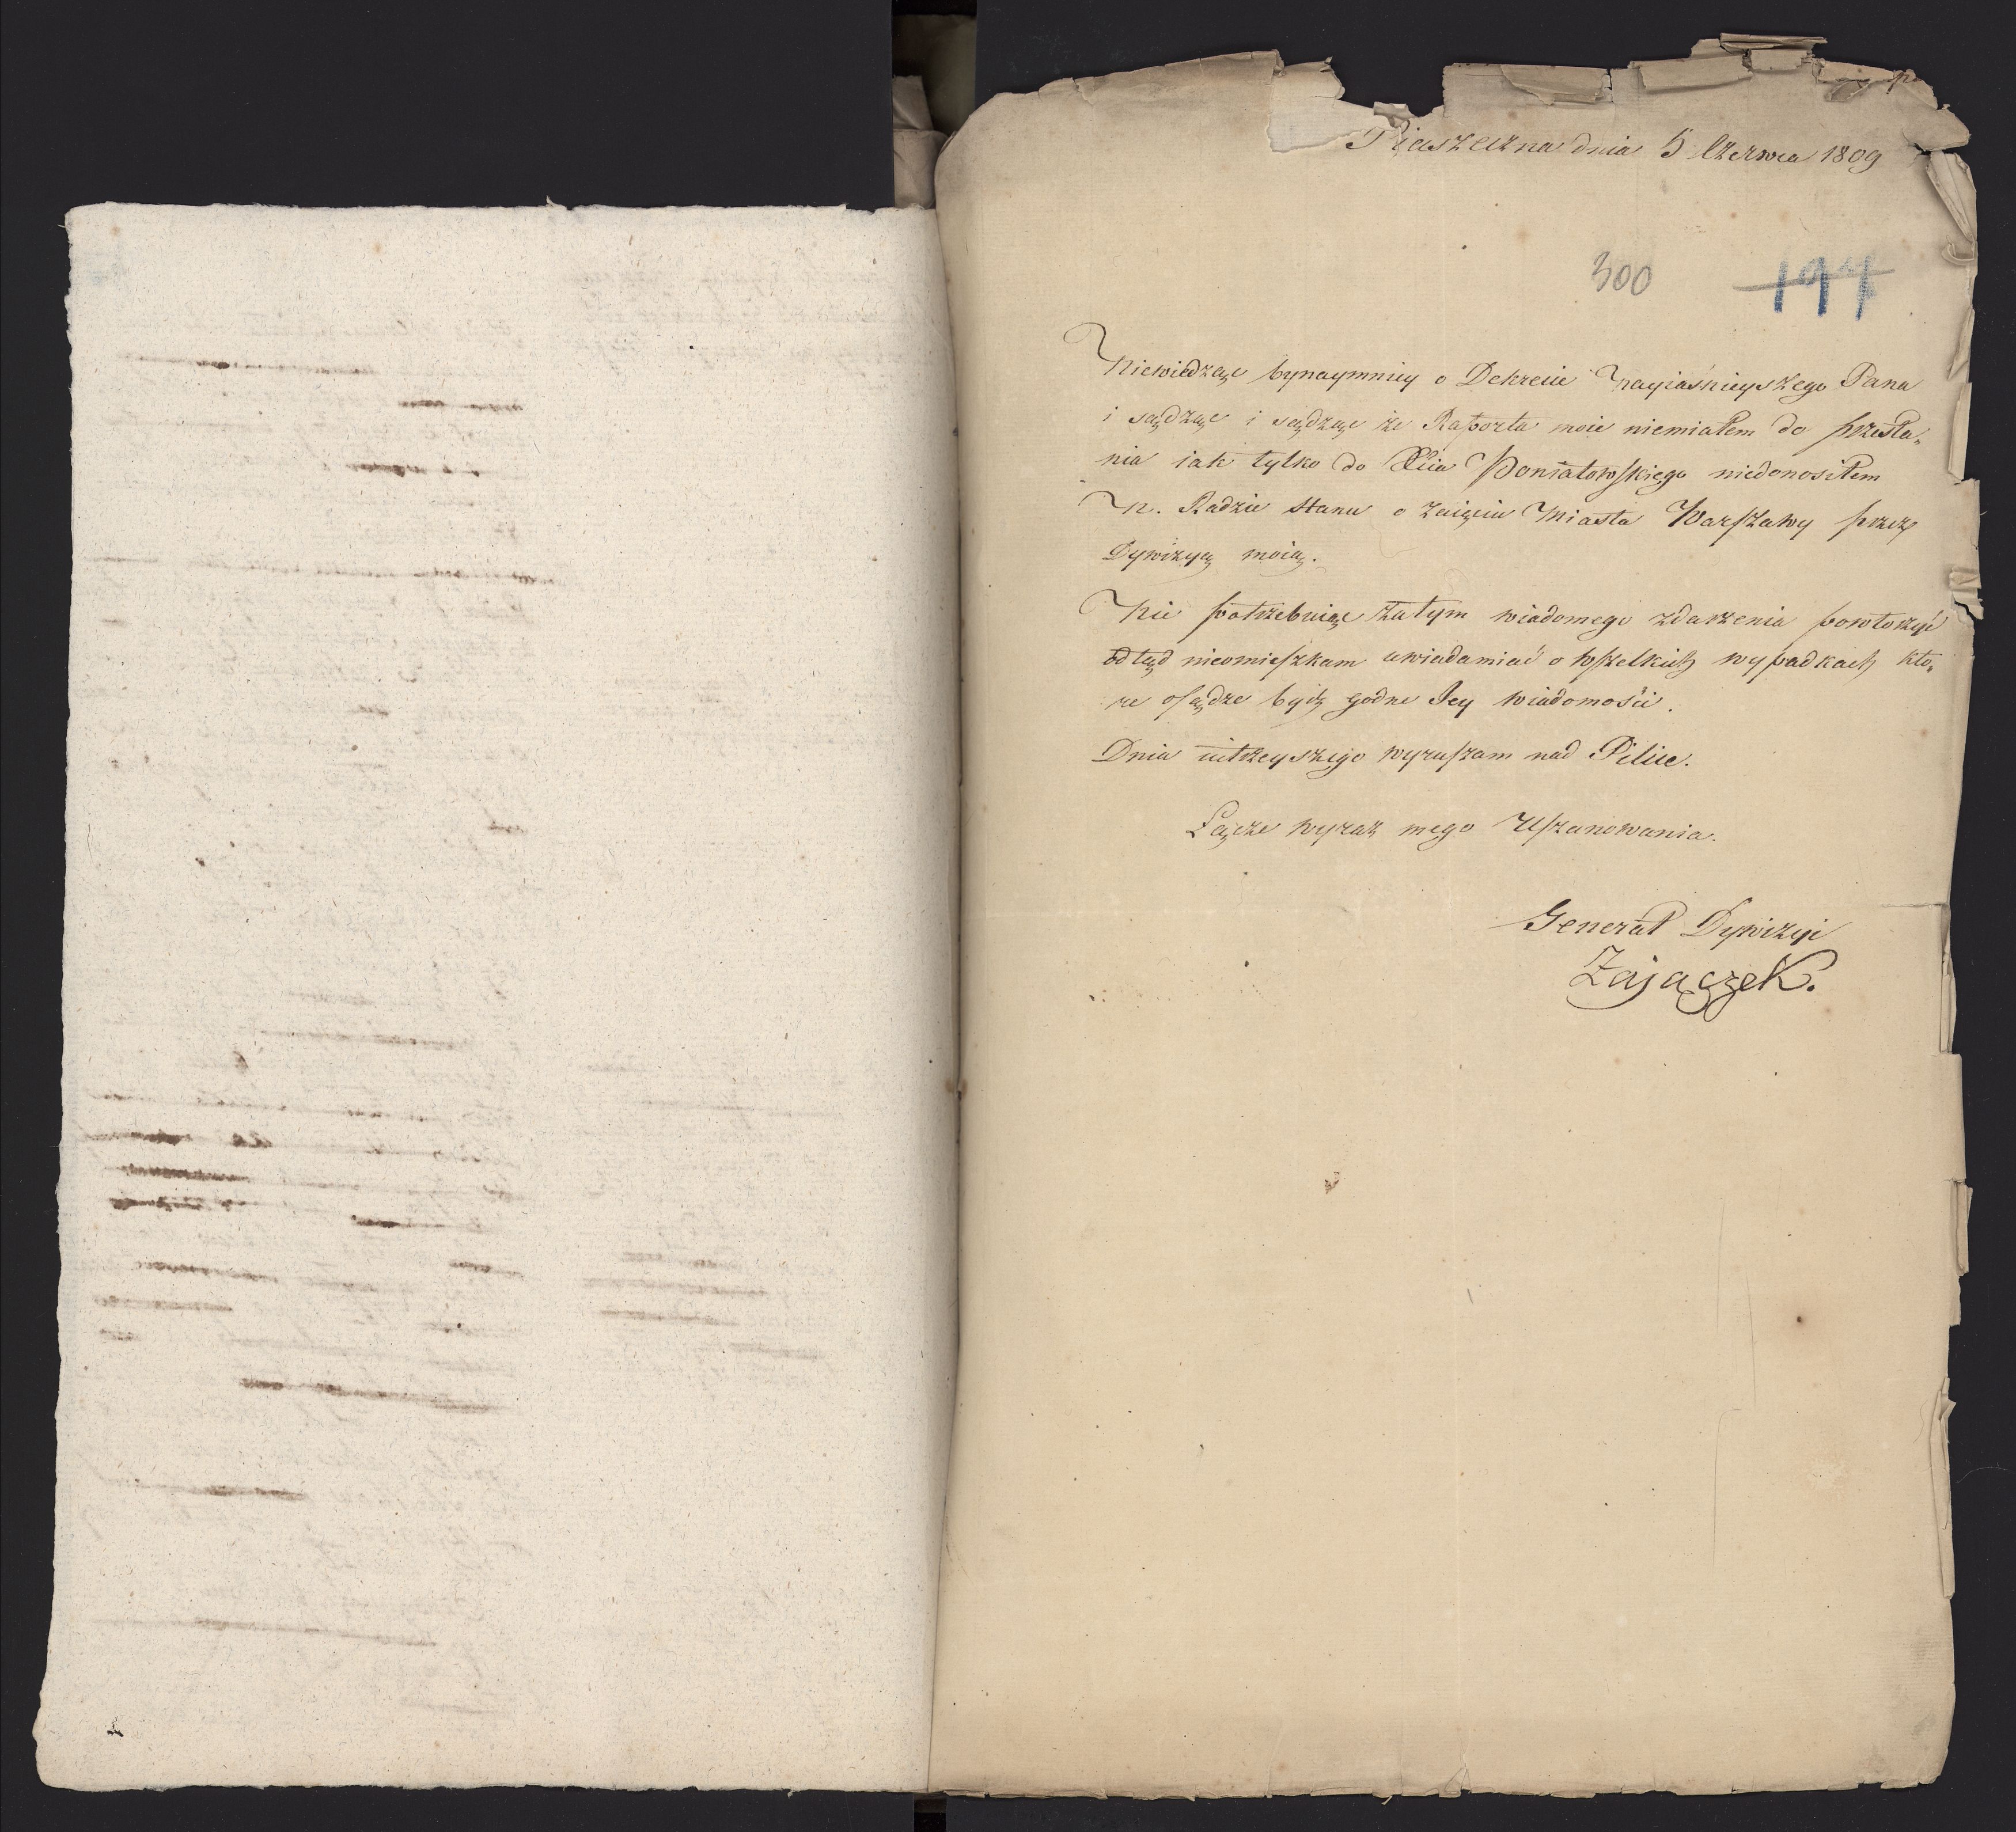 Piaseczna dnia 5 Czerwca 1809
300 197
Niewiedząc bynaymniey o Dekrecie Nayiaśnieyszego Pana
i sądząc i sądząc że Raporta moie niemiałem do przesła„
nia iak tylko do Xcia Poniatowskiego niedonosiłem
N. Radzie Stanu o zaięciu Miasta Warszawy przez
Dywizyą moią.
Nie potrzebuiąc zatym wiadomego zdarzenia powtorzyć
odtąd nieomieszkam uwiadamiać o wszelkich wypadkach kto„
re osądze bydź godne Jey wiadomości.
Dnia iutrzeyszego wyruszam nad Pilice.
Łącze wyraz mego Uszanowania.
Generał Dywizyi
Zajączek.